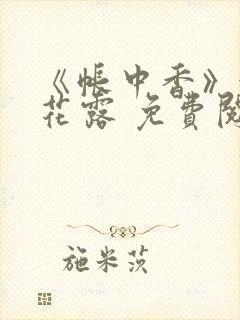 《帐中香》
花露 免费阅
施米茨